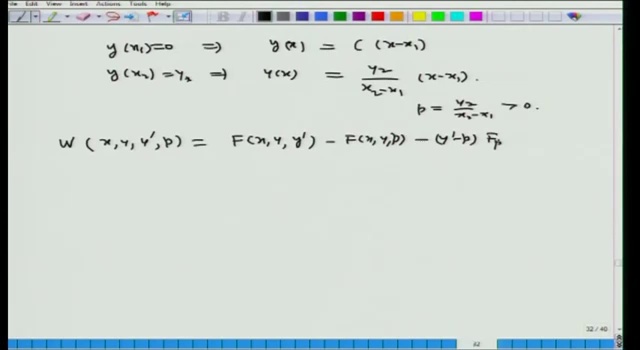 Edit View Insert Actions Tools Help
y(x₁)=0 ⇒ y(x) = C (x-x₁)
y(x₂)=y₂ ⇒ y(x) = y₂/(x₂-x₁) (x-x₁).
p = y₂/(x₂-x₁) > 0.
W (x, y, y', p) = F(x, y, y') - F(x, y, p) - (y'-p) Fp
32 / 40